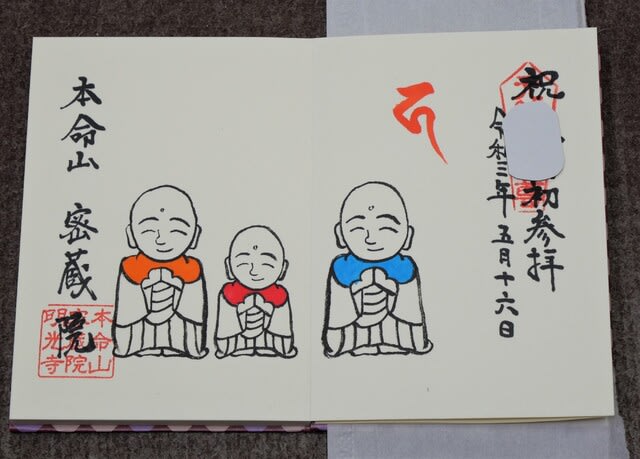 祝 初参拝
令和三年五月十六日
本命山 密蔵院
本命山
密蔵院
明光寺